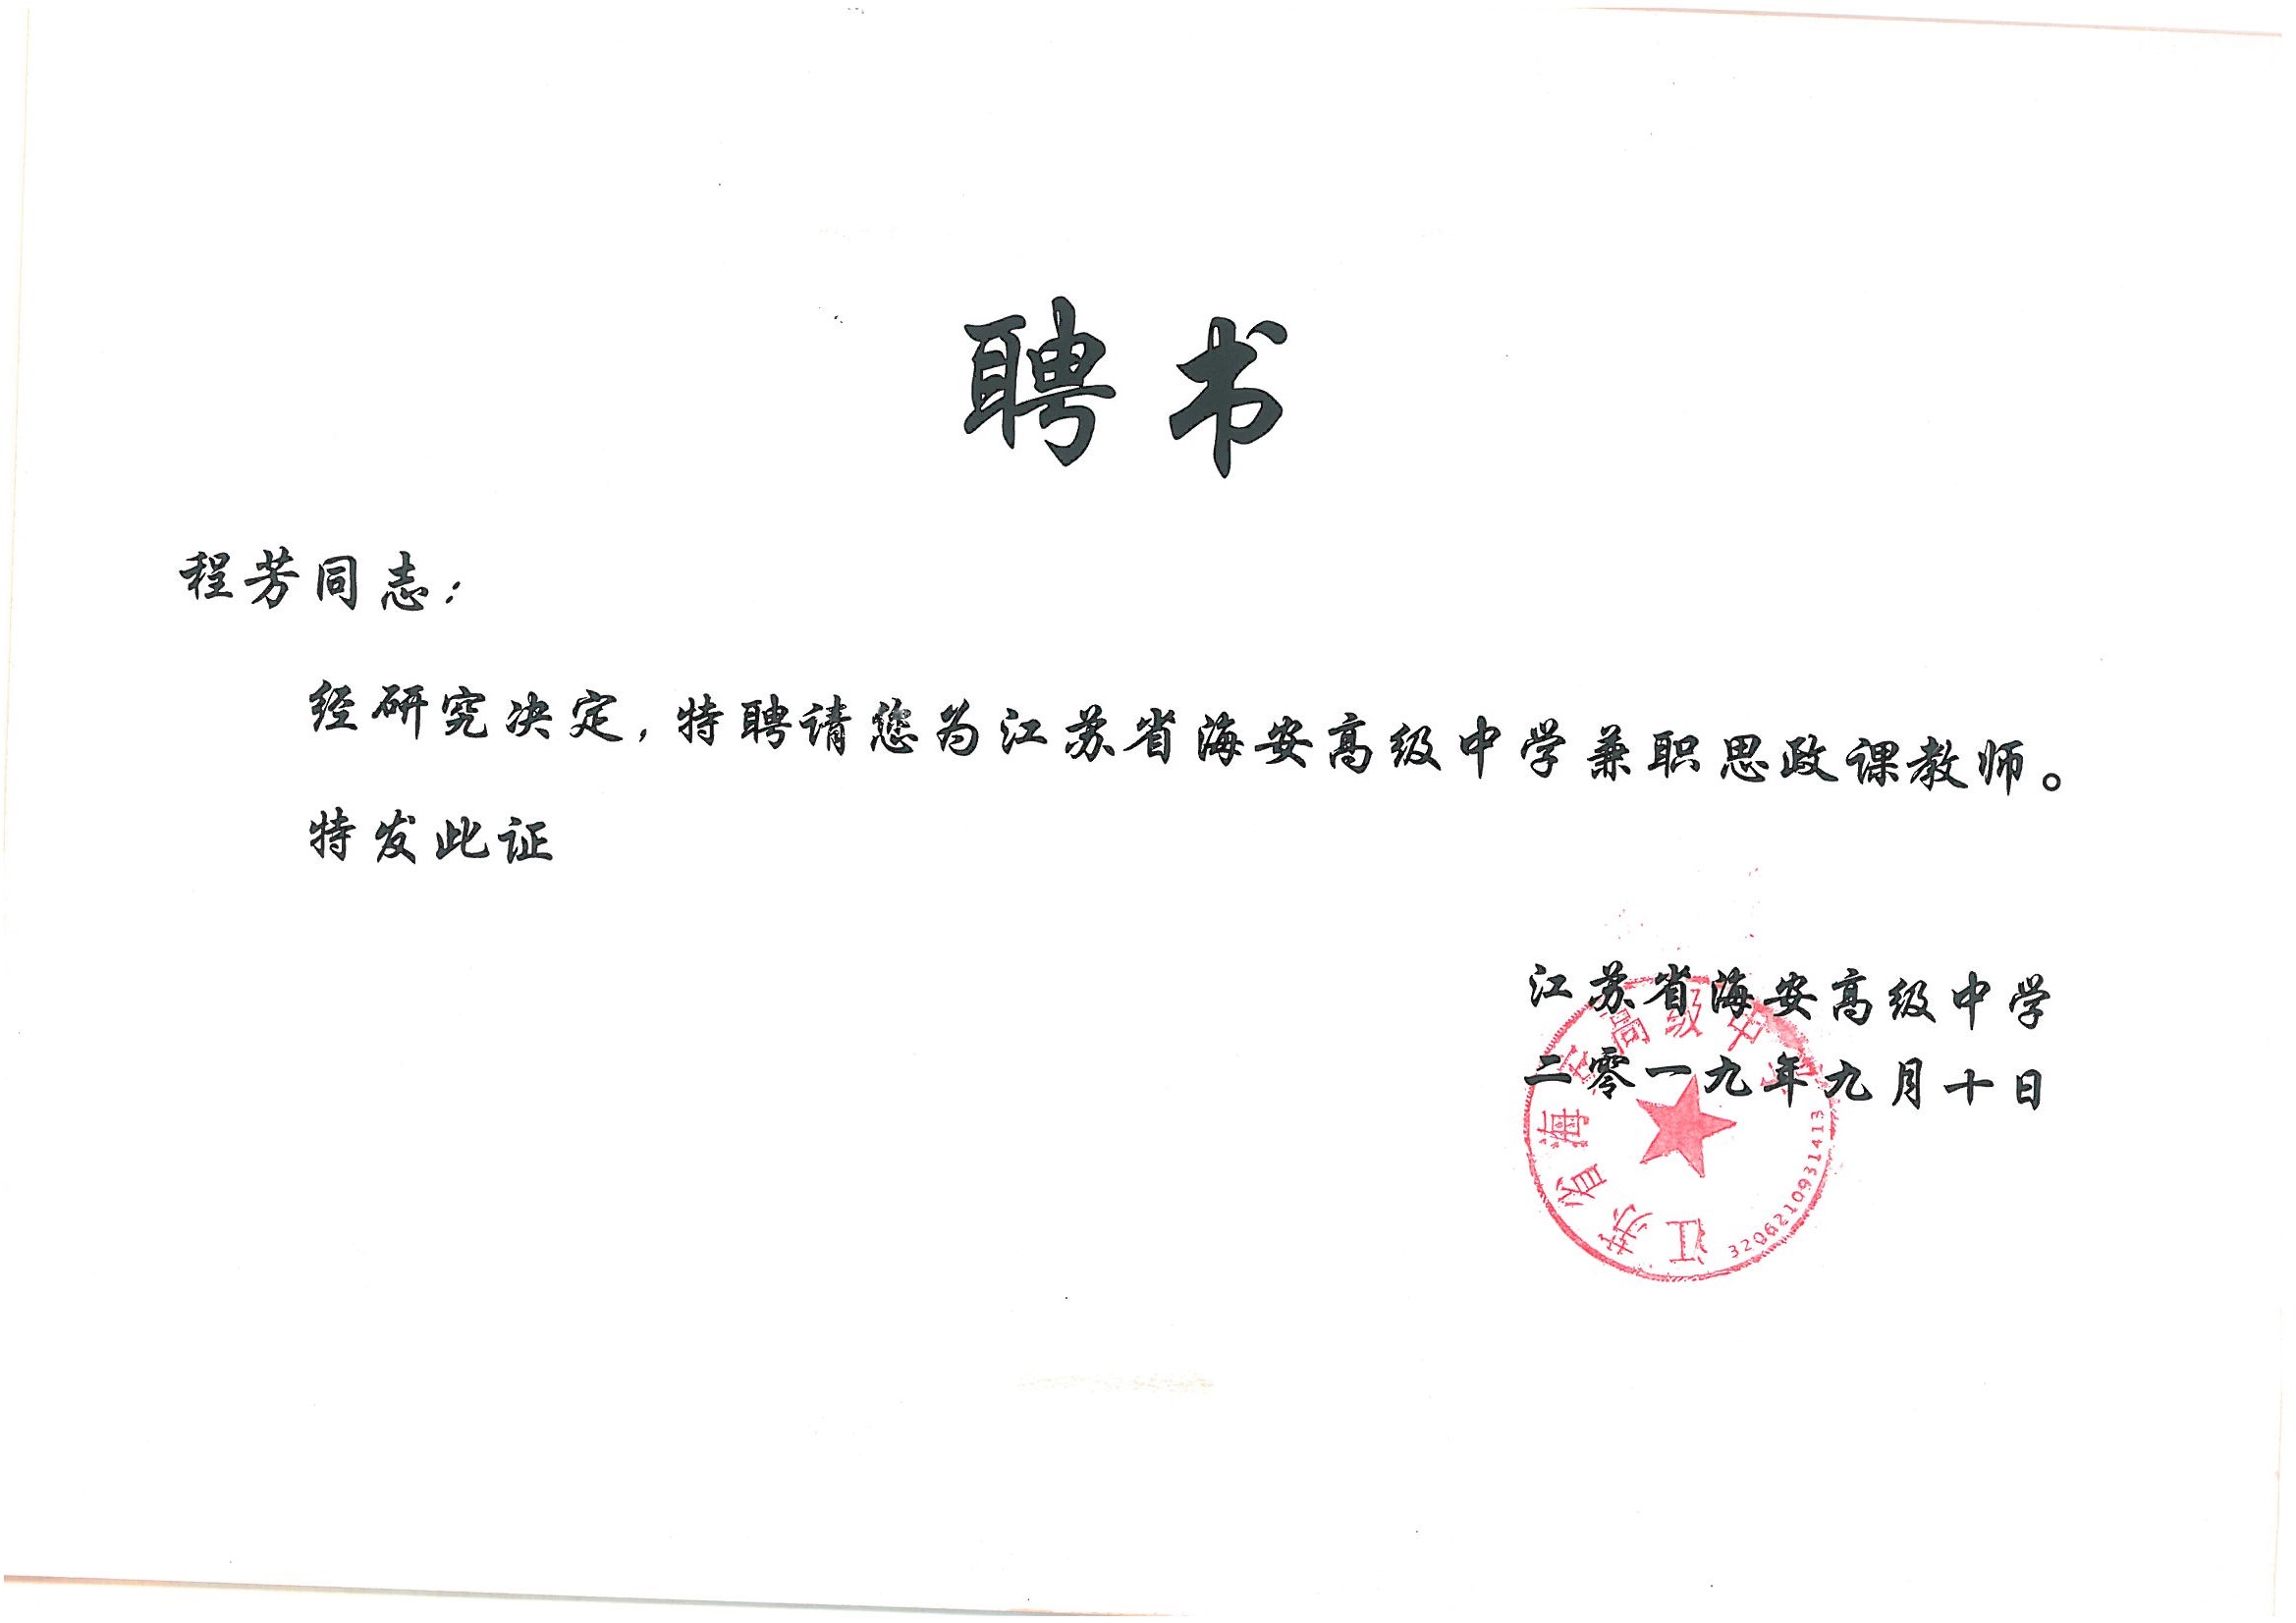 聘书
程芳同志：
经研究决定，特聘请您为江苏省海安高级中学兼职思政课教师。
特发此证
江苏省海安高级中学
二零一九年九月十日
江苏省海安高级中学
3206210931413